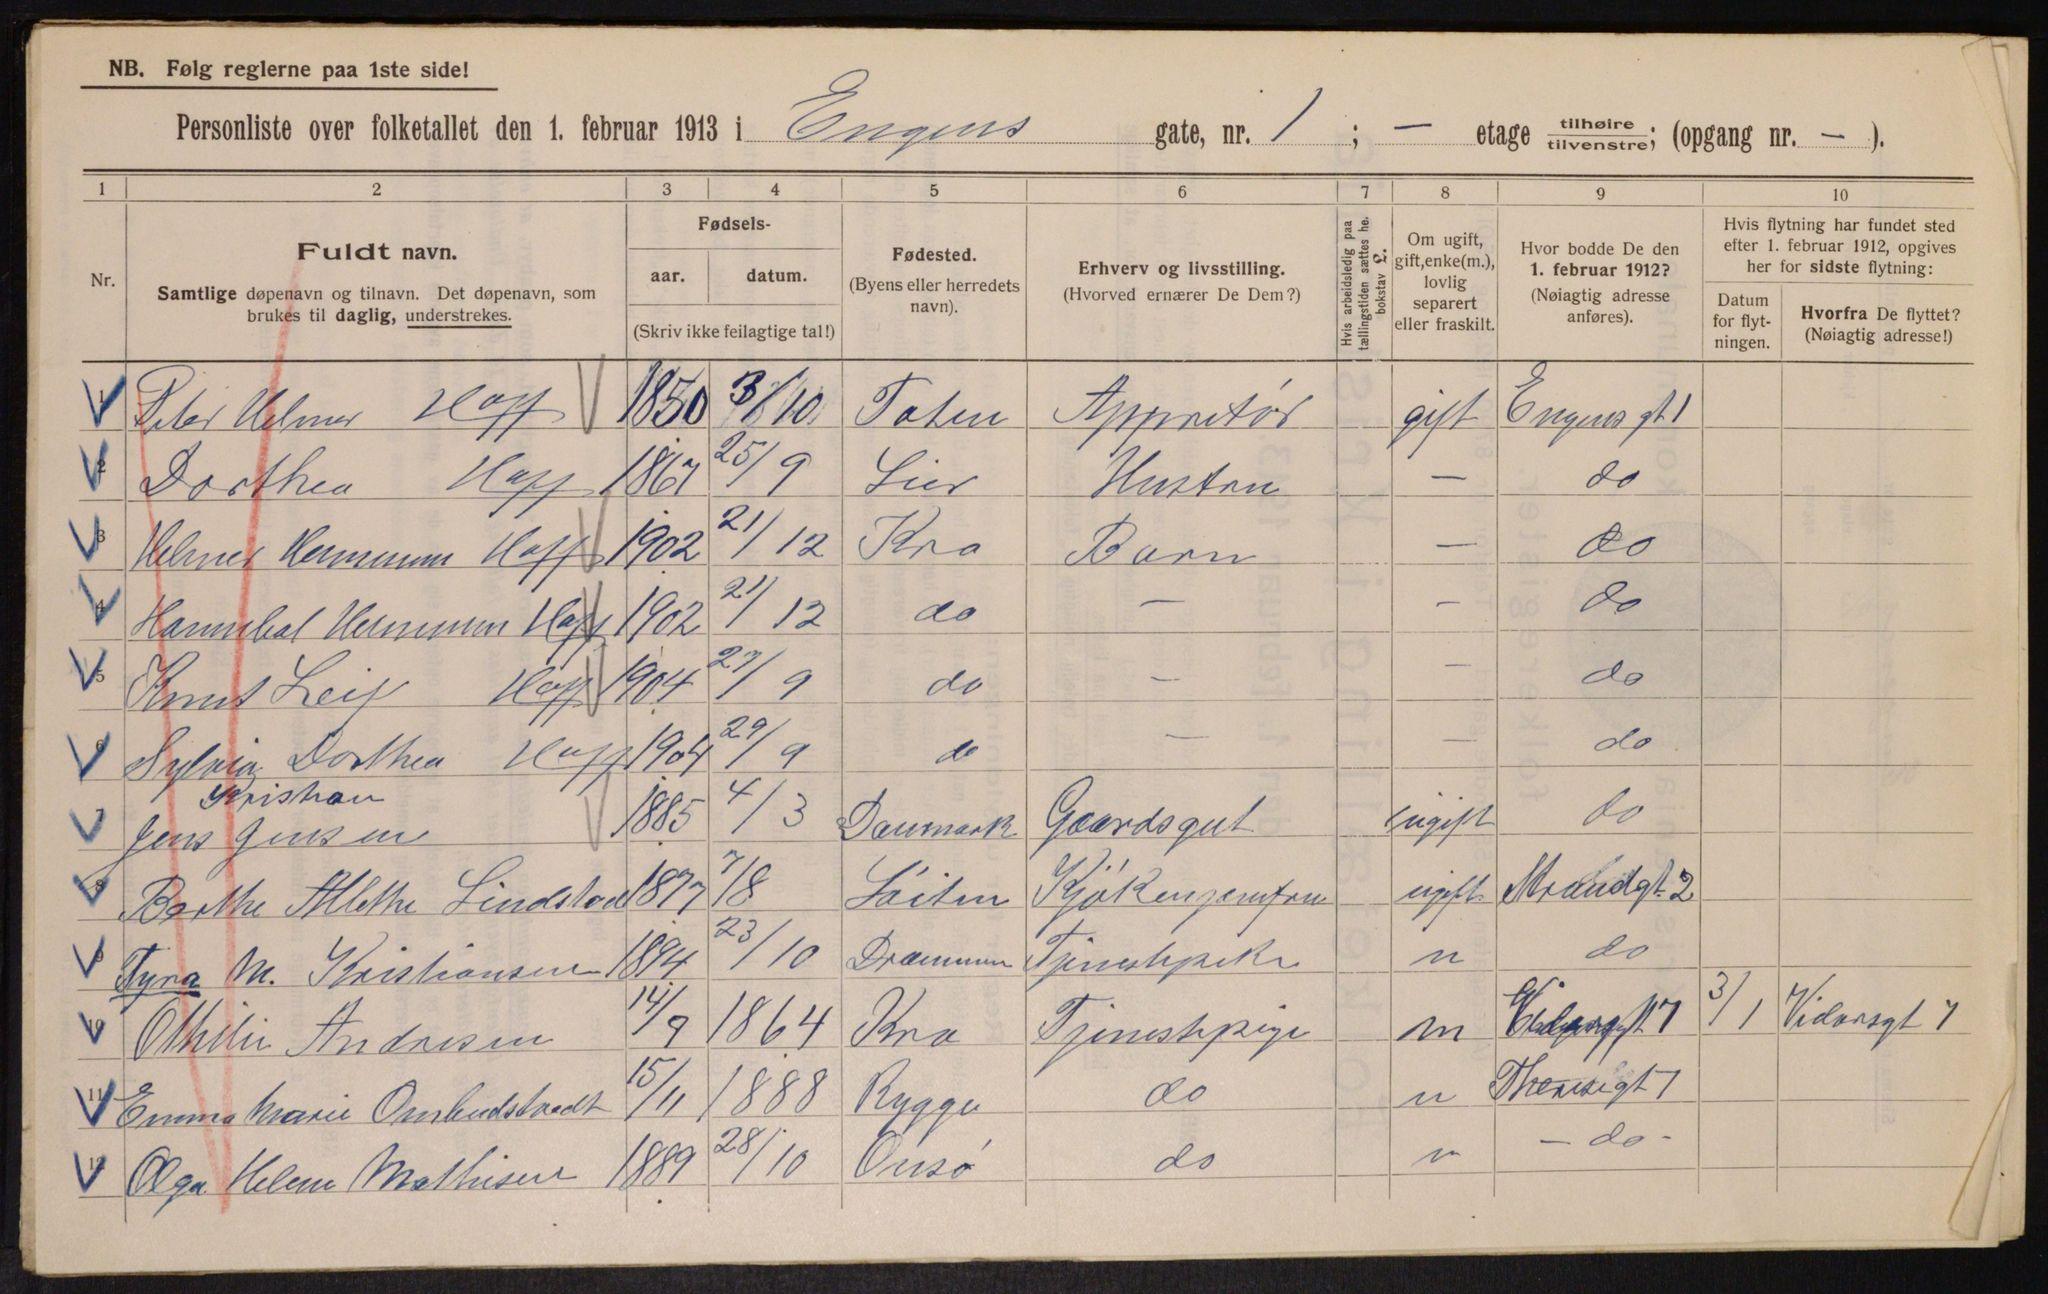 NB. Følg reglerne paa 1ste side!
Personliste over folketallet den 1. februar 1913 i Engens gate, nr. 1 ; — etage tilhøire tilvenstre; (opgang nr. — ).
1 2 3 4 5 6 7 8 9 10
Nr.
Fuldt navn.
Samtlige døpenavn og tilnavn. Det døpenavn, som
brukes til daglig, understrekes.
Fødsels-
aar. datum.
(Skriv ikke feilagtige tal!)
Fødested.
(Byens eller herredets
navn).
Erhverv og livsstilling.
(Hvorved ernærer De Dem?)
Hvis arbeidsledig paa
tællingstiden sættes he.
bokstav L.
Om ugift,
gift, enke(m.),
lovlig
separert
eller fraskilt.
Hvor bodde De den
1. februar 1912?
(Nøiagtig adresse
anføres).
Hvis flytning har fundet sted
efter 1. februar 1912, opgives
her for sidste flytning:
Datum
for flyt-
ningen.
Hvorfra De flyttet?
(Nøiagtig adresse!)
1 Peter Helmer Hoff 1850 /10 Toten Appretør gift Engens gt 1
2 Dorthea Hoff 1867 25/9 Lier Hustru — do
3 Helmer Hermann Hoff 1902 21/12 Kra Barn — do
4 Hannibal Hermann Hoff 1902 21/12 do — — do
5 Knut Leif Hoff 1904 29/9 do — — do
6 Sylvia Dorthea Hoff 1904 29/9 do — — do
Kristian
7 Jens Jensen 1885 4/3 Danmark Gaardsgut ugift do
8 Berthe Alethe Lindstad 1877 7/8 Löiten Kjökkenjomfru ugift Strandgt. 2
9 Tyra M. Kristiansen 1894 23/10 Drammen Tjenestepike u do
10 Othilie Andresen 14/9 1864 Kra Tjenestepige u 7 3/1 Vidarsgt 7
11 Emma Marie 15/11 1888 Rygge do u Theresegt 1
12 Olga Helene Mathisen 1889 28/10 Onsö do u — do -